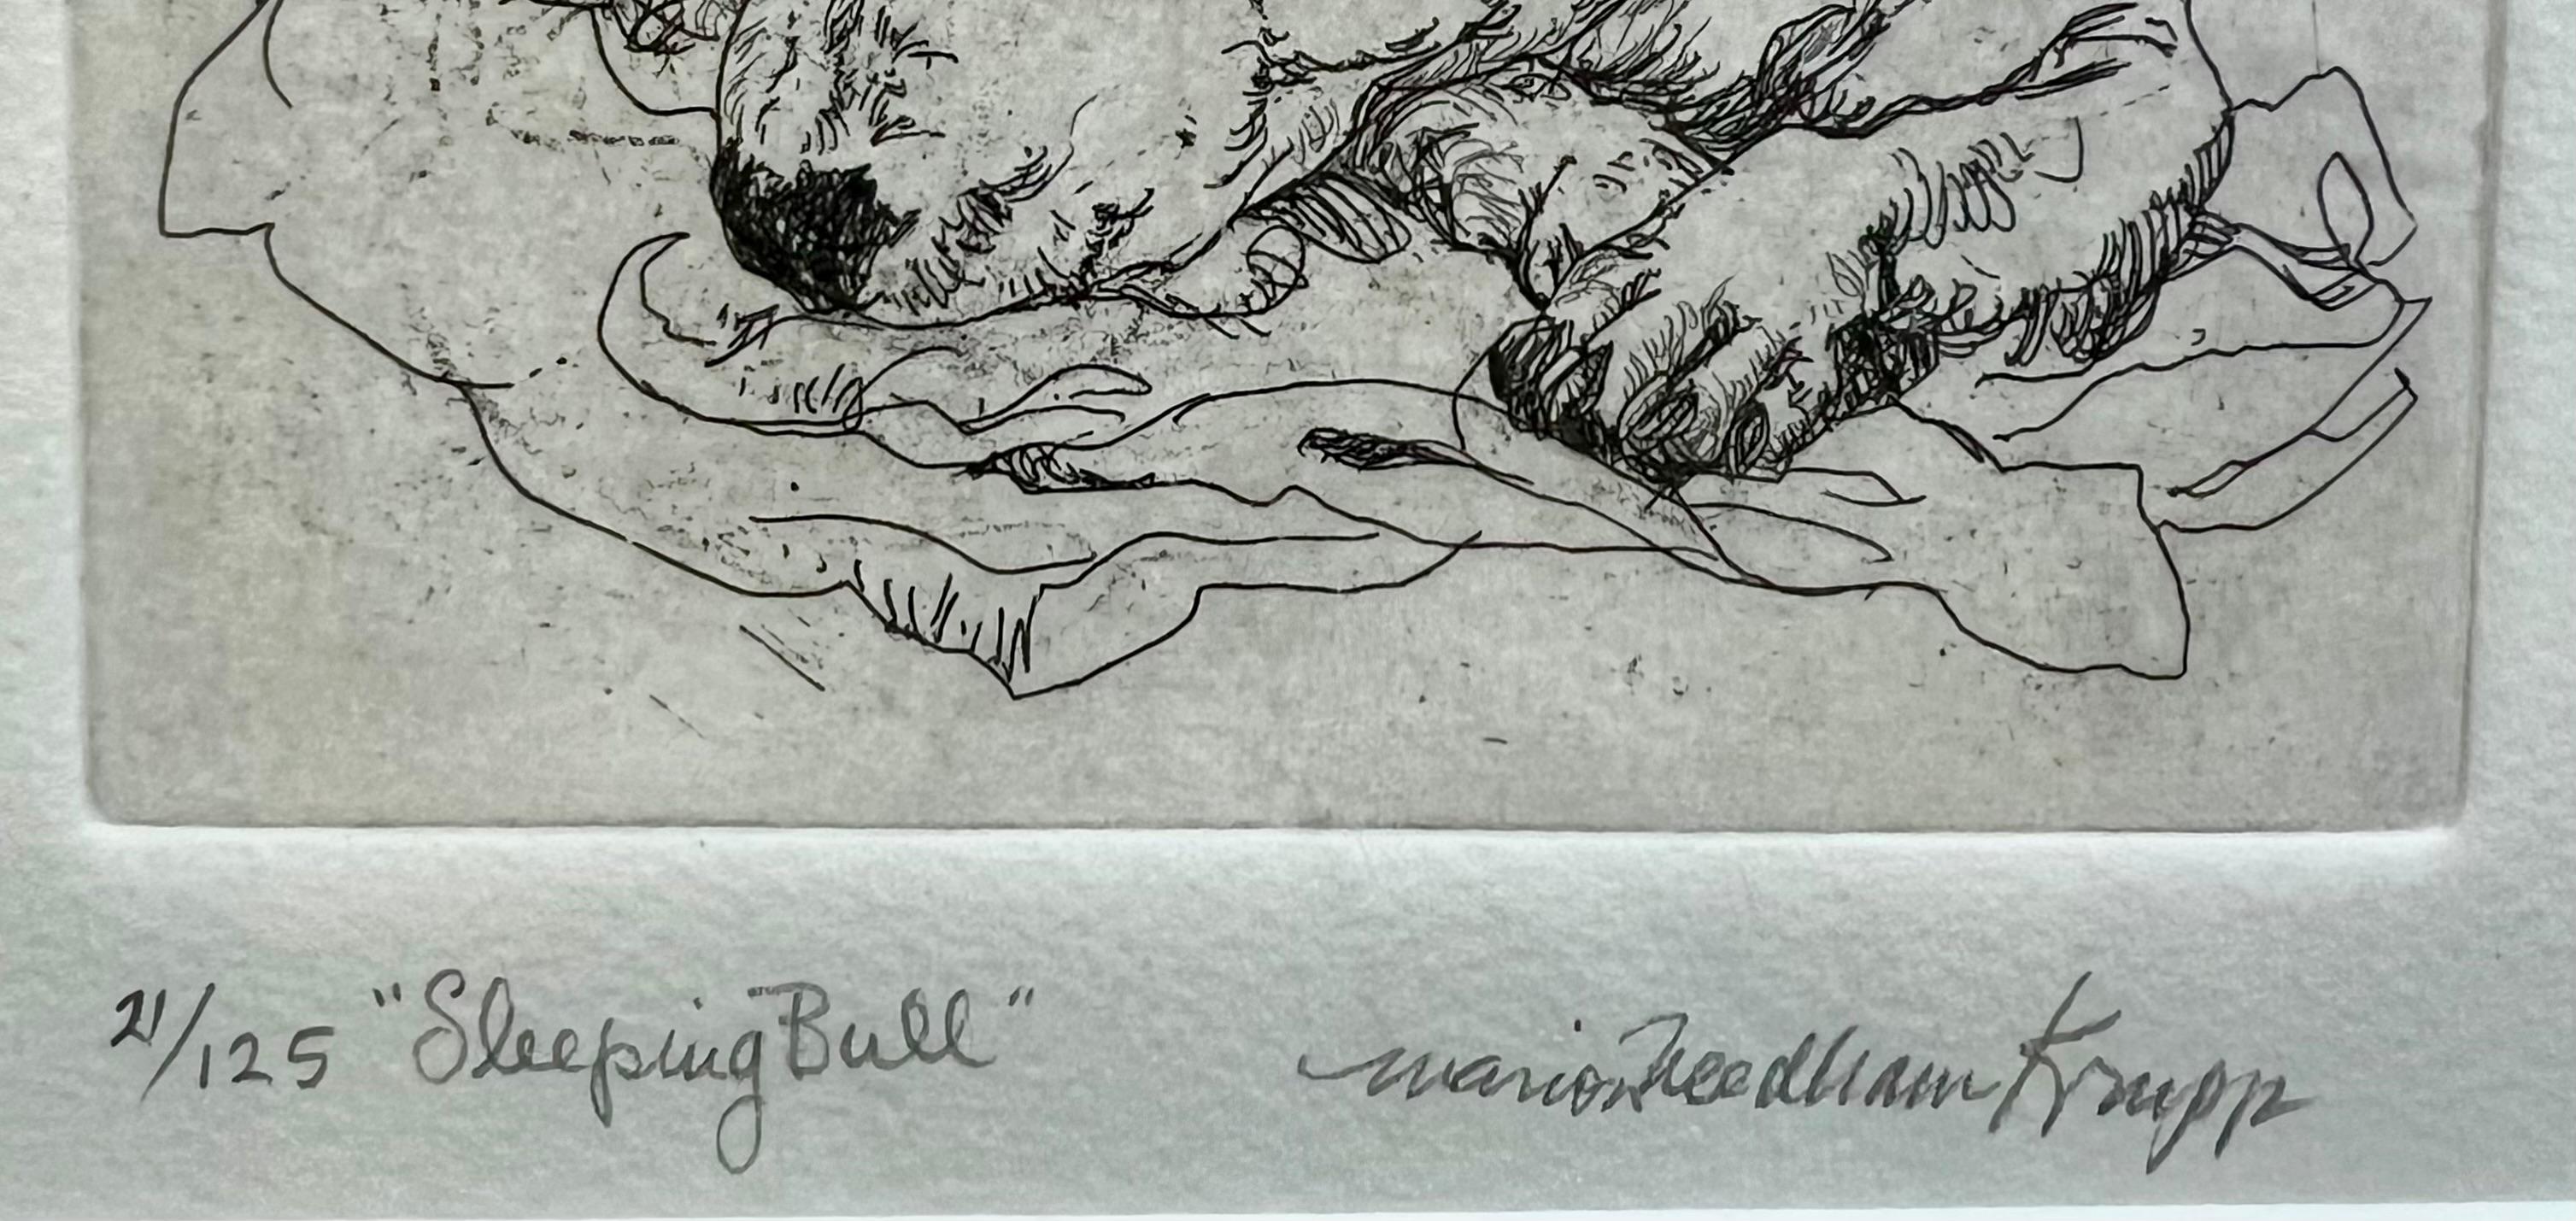 21/125 "Sleeping Bull" Marion Needham Krupp